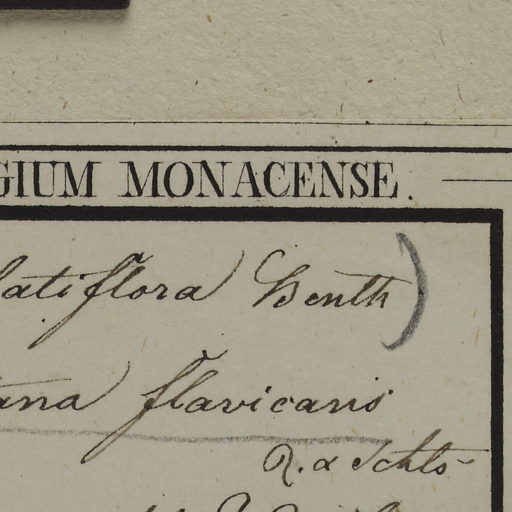 GIUM MONACENSE.
latiflora Benth)
ana flavicans
R. & Schlt-